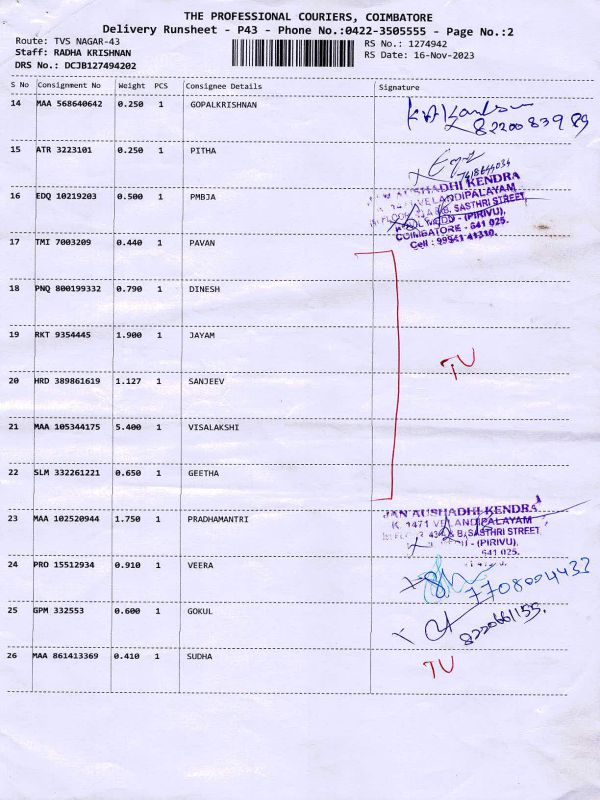 THE PROFESSIONAL COURIERS, COIMBATORE
Delivery Runsheet - P43 - Phone No.:0422-3505555 - Page No.:2
Route: TVS NAGAR-43
RS No.: 1274942
Staff: RADHA KRISHNAN
RS Date: 16-Nov-2023
DRS No.: DCJB127494202
S No Consignment No Weight PCS Consignee Details Signature
14 MAA 568640642 0.250 1 GOPALKRISHNAN
8220083989
15 ATR 3223101 0.250 1 PITHA
16 EDQ 10219203 0.500 1 PMBJA
AUSHADHI KENDRA
VELANDIPALAYAM
B. SASTHRI STREET
(PIRIVU),
COIMBATORE - 641 025.
Cell : 99941 41310.
17 TMI 7003209 0.440 1 PAVAN
18 PNQ 800199332 0.790 1 DINESH
19 RKT 9354445 1.900 1 JAYAM
TV
20 HRD 389861619 1.127 1 SANJEEV
21 MAA 105344175 5.400 1 VISALAKSHI
22 SLM 332261221 0.650 1 GEETHA
23 MAA 102520944 1.750 1 PRADHAMANTRI
JAN AUSHADHI KENDRA
K. 1471 VELANDIPALAYAM
B. SASTHRI STREET
- (PIRIVU),
641 025.
24 PRO 15512934 0.910 1 VEERA
7708004433
25 GPM 332553 0.600 1 GOKUL
8220661155.
26 MAA 861413369 0.410 1 SUDHA
TV